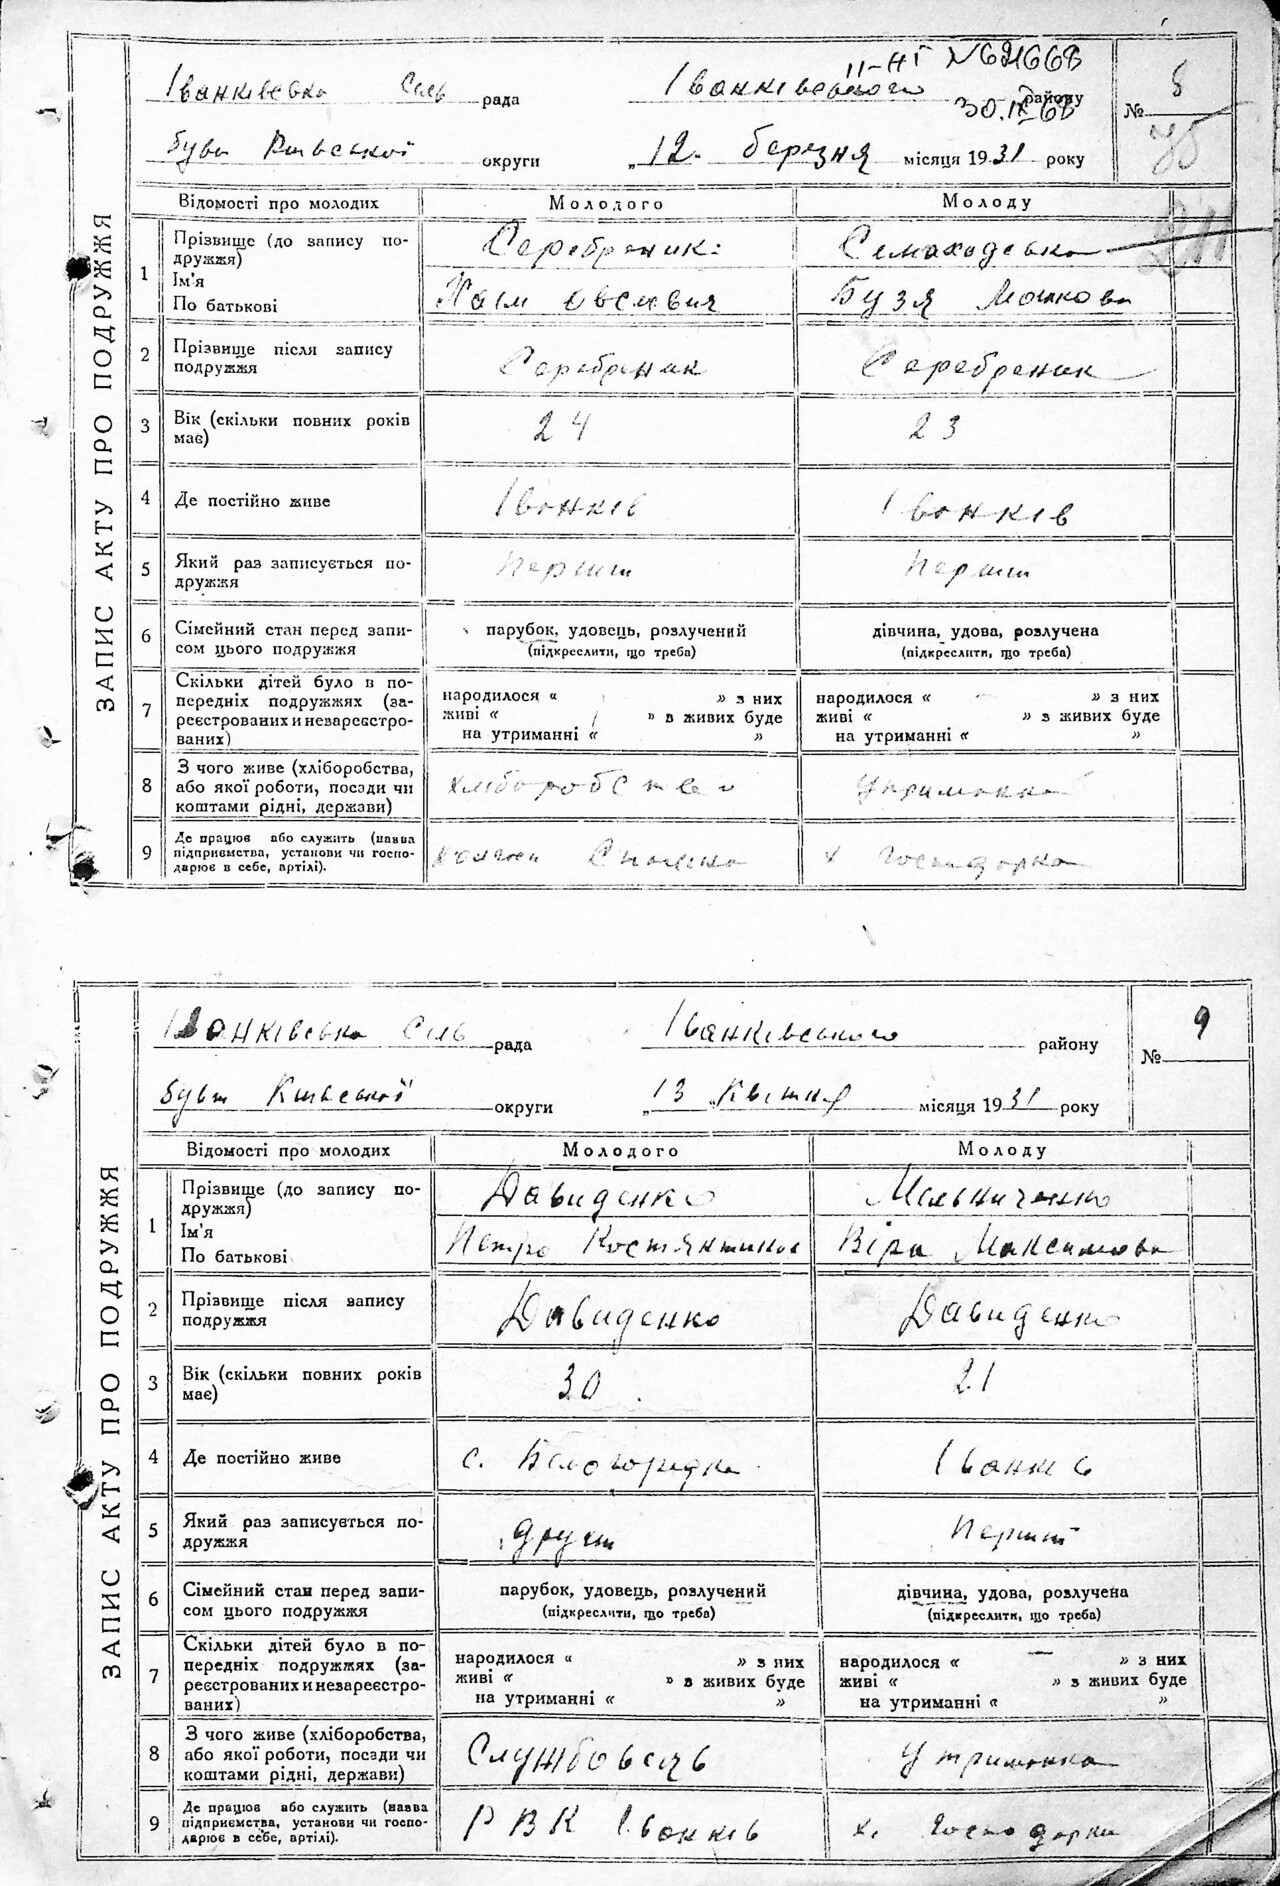 II-НГ №621668
30.IX 68
Іванківська Сіль рада Іванківського району № 8
75
був Київської округи „12. березня місяця 1931 року
211
ЗАПИС АКТУ ПРО ПОДРУЖЖЯ
Відомості про молодих Молодого Молоду
1 Прізвище (до запису по- Серебреник Самоходська
дружжя)
Ім'я
По батькові Хаїм Овсеевич Бузя Мошкова
2 Прізвище після запису
подружжя Серебреник Серебреник
3 Вік (скільки повних років 24 23
має)
4 Де постійно живе Іванків Іванків
5 Який раз записується по- Перший Перший
дружжя
6 Сімейний стан перед запи- парубок, удовець, розлучений дівчина, удова, розлучена
сом цього подружжя (підкреслити, що треба) (підкреслити, що треба)
7 Скільки дітей було в по-
передніх подружжях (за- народилося « » з них народилося « — » з них
реєстрованих и незареєстро- живі « » в живих буде живі « » з живих буде
ваних) на утриманні « » на утриманні « »
8 З чого живе (хліборобства,
або якої роботи, посади чи хліборобство утриманка
коштами рідні, держави)
9 Де працює або служить (назва
підприємства, установи чи госпо- колгосп х господарка
дарює в себе, артілі).
Іванківська Сіль рада Іванківського району № 9
був Київської округи „13 „Квітня місяця 1931 року
ЗАПИС АКТУ ПРО ПОДРУЖЖЯ
Відомості про молодих Молодого Молоду
1 Прізвище (до запису по- Давиденко Мельниченко
дружжя)
Ім'я
По батькові Петро Костянтинов Віра Максимова
2 Прізвище після запису
подружжя Давиденко Давиденко
3 Вік (скільки повних років 30 21
має)
4 Де постійно живе с. Білогородка Іванків
5 Який раз записується по- другий Перший
дружжя
6 Сімейний стан перед запи- парубок, удовець, розлучений дівчина, удова, розлучена
сом цього подружжя (підкреслити, що треба) (підкреслити, що треба)
7 Скільки дітей було в по-
передніх подружжях (за- народилося « » з них народилося « — » з них
реєстрованих и незареєстро- живі « » в живих буде живі « » з живих буде
ваних) на утриманні « » на утриманні « »
8 З чого живе (хліборобства,
або якої роботи, посади чи Службовець Утриманка
коштами рідні, держави)
9 Де працює або служить (назва
підприємства, установи чи госпо- РВК Іванків х. Господарка
дарює в себе, артілі).